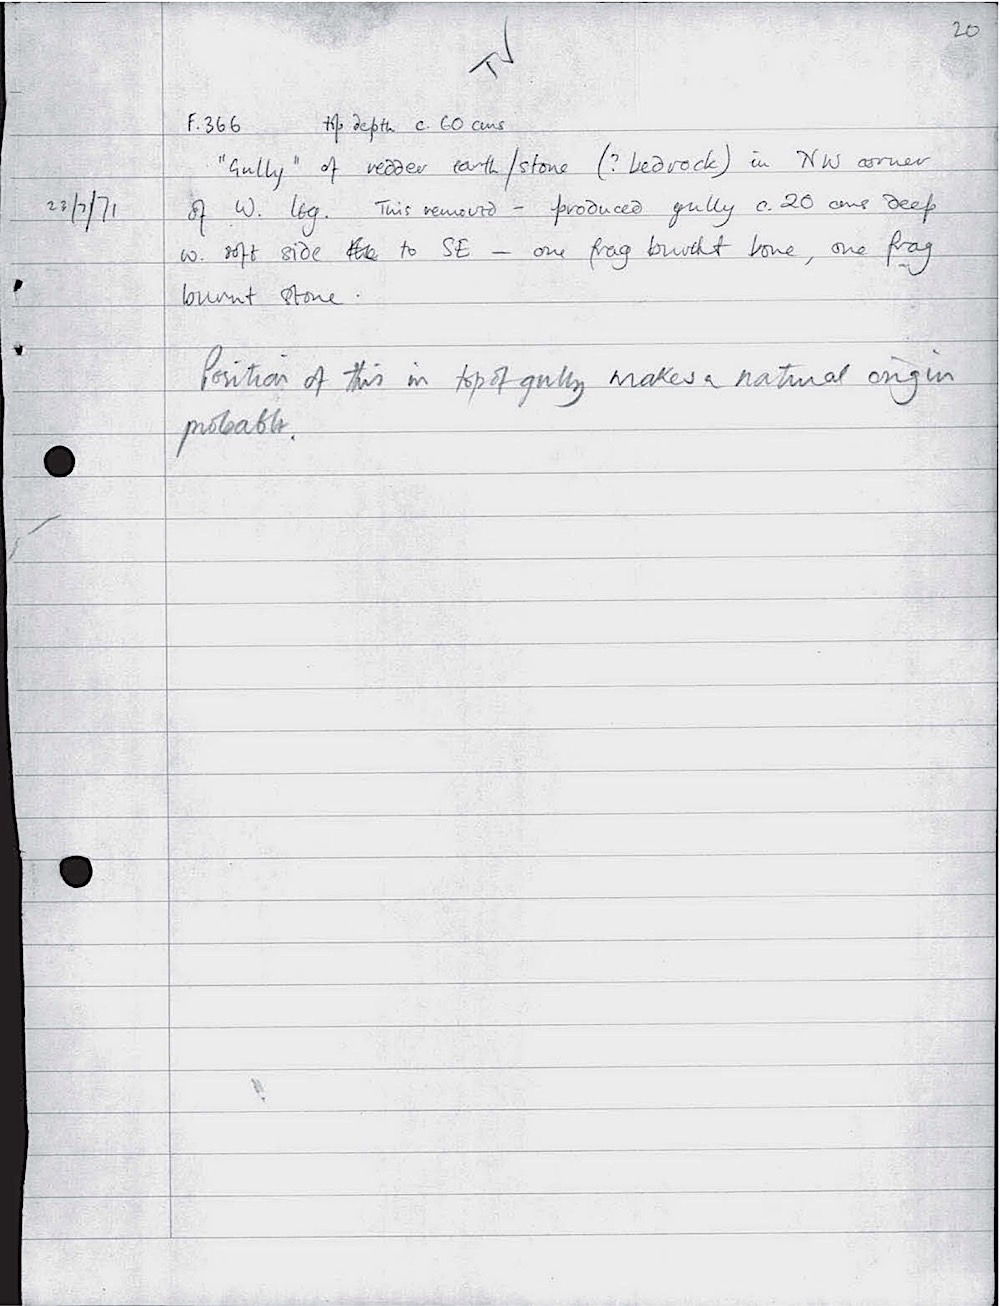 20
TV
F.366 top depth c. 60 cms
"Gully" of redder earth/stone (? bedrock) in NW corner
23/7/71 of W. leg. This removed - produced gully c. 20 cms deep
w. soft side to SE - one frag burnt bone, one frag
burnt stone.
Position of this in top of gully makes a natural origin
probable.